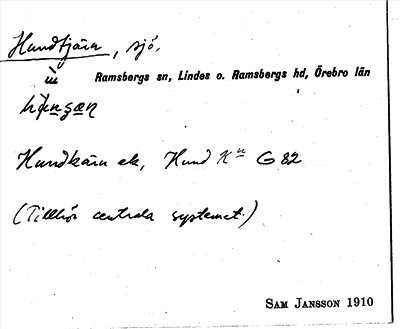 Hundtjärn, sjö.
i
Ramsbergs sn, Lindes o. Ramsbergs hd, Örebro län
Hundkärn ek, Hund Kn G 82
(Tillhör centrala systemet.)
SAM JANSSON 1910